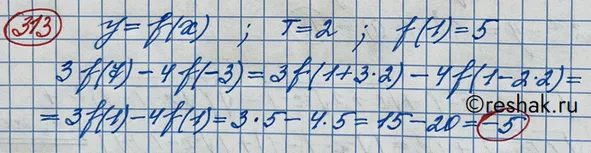 313 y = f(x) ; T = 2 ; f(1) = 5
3f(7) - 4f(-3) = 3f(1+3·2) - 4f(1-2·2) =
©reshak.ru
= 3f(1) - 4f(1) = 3·5 - 4·5 = 15 - 20 = -5